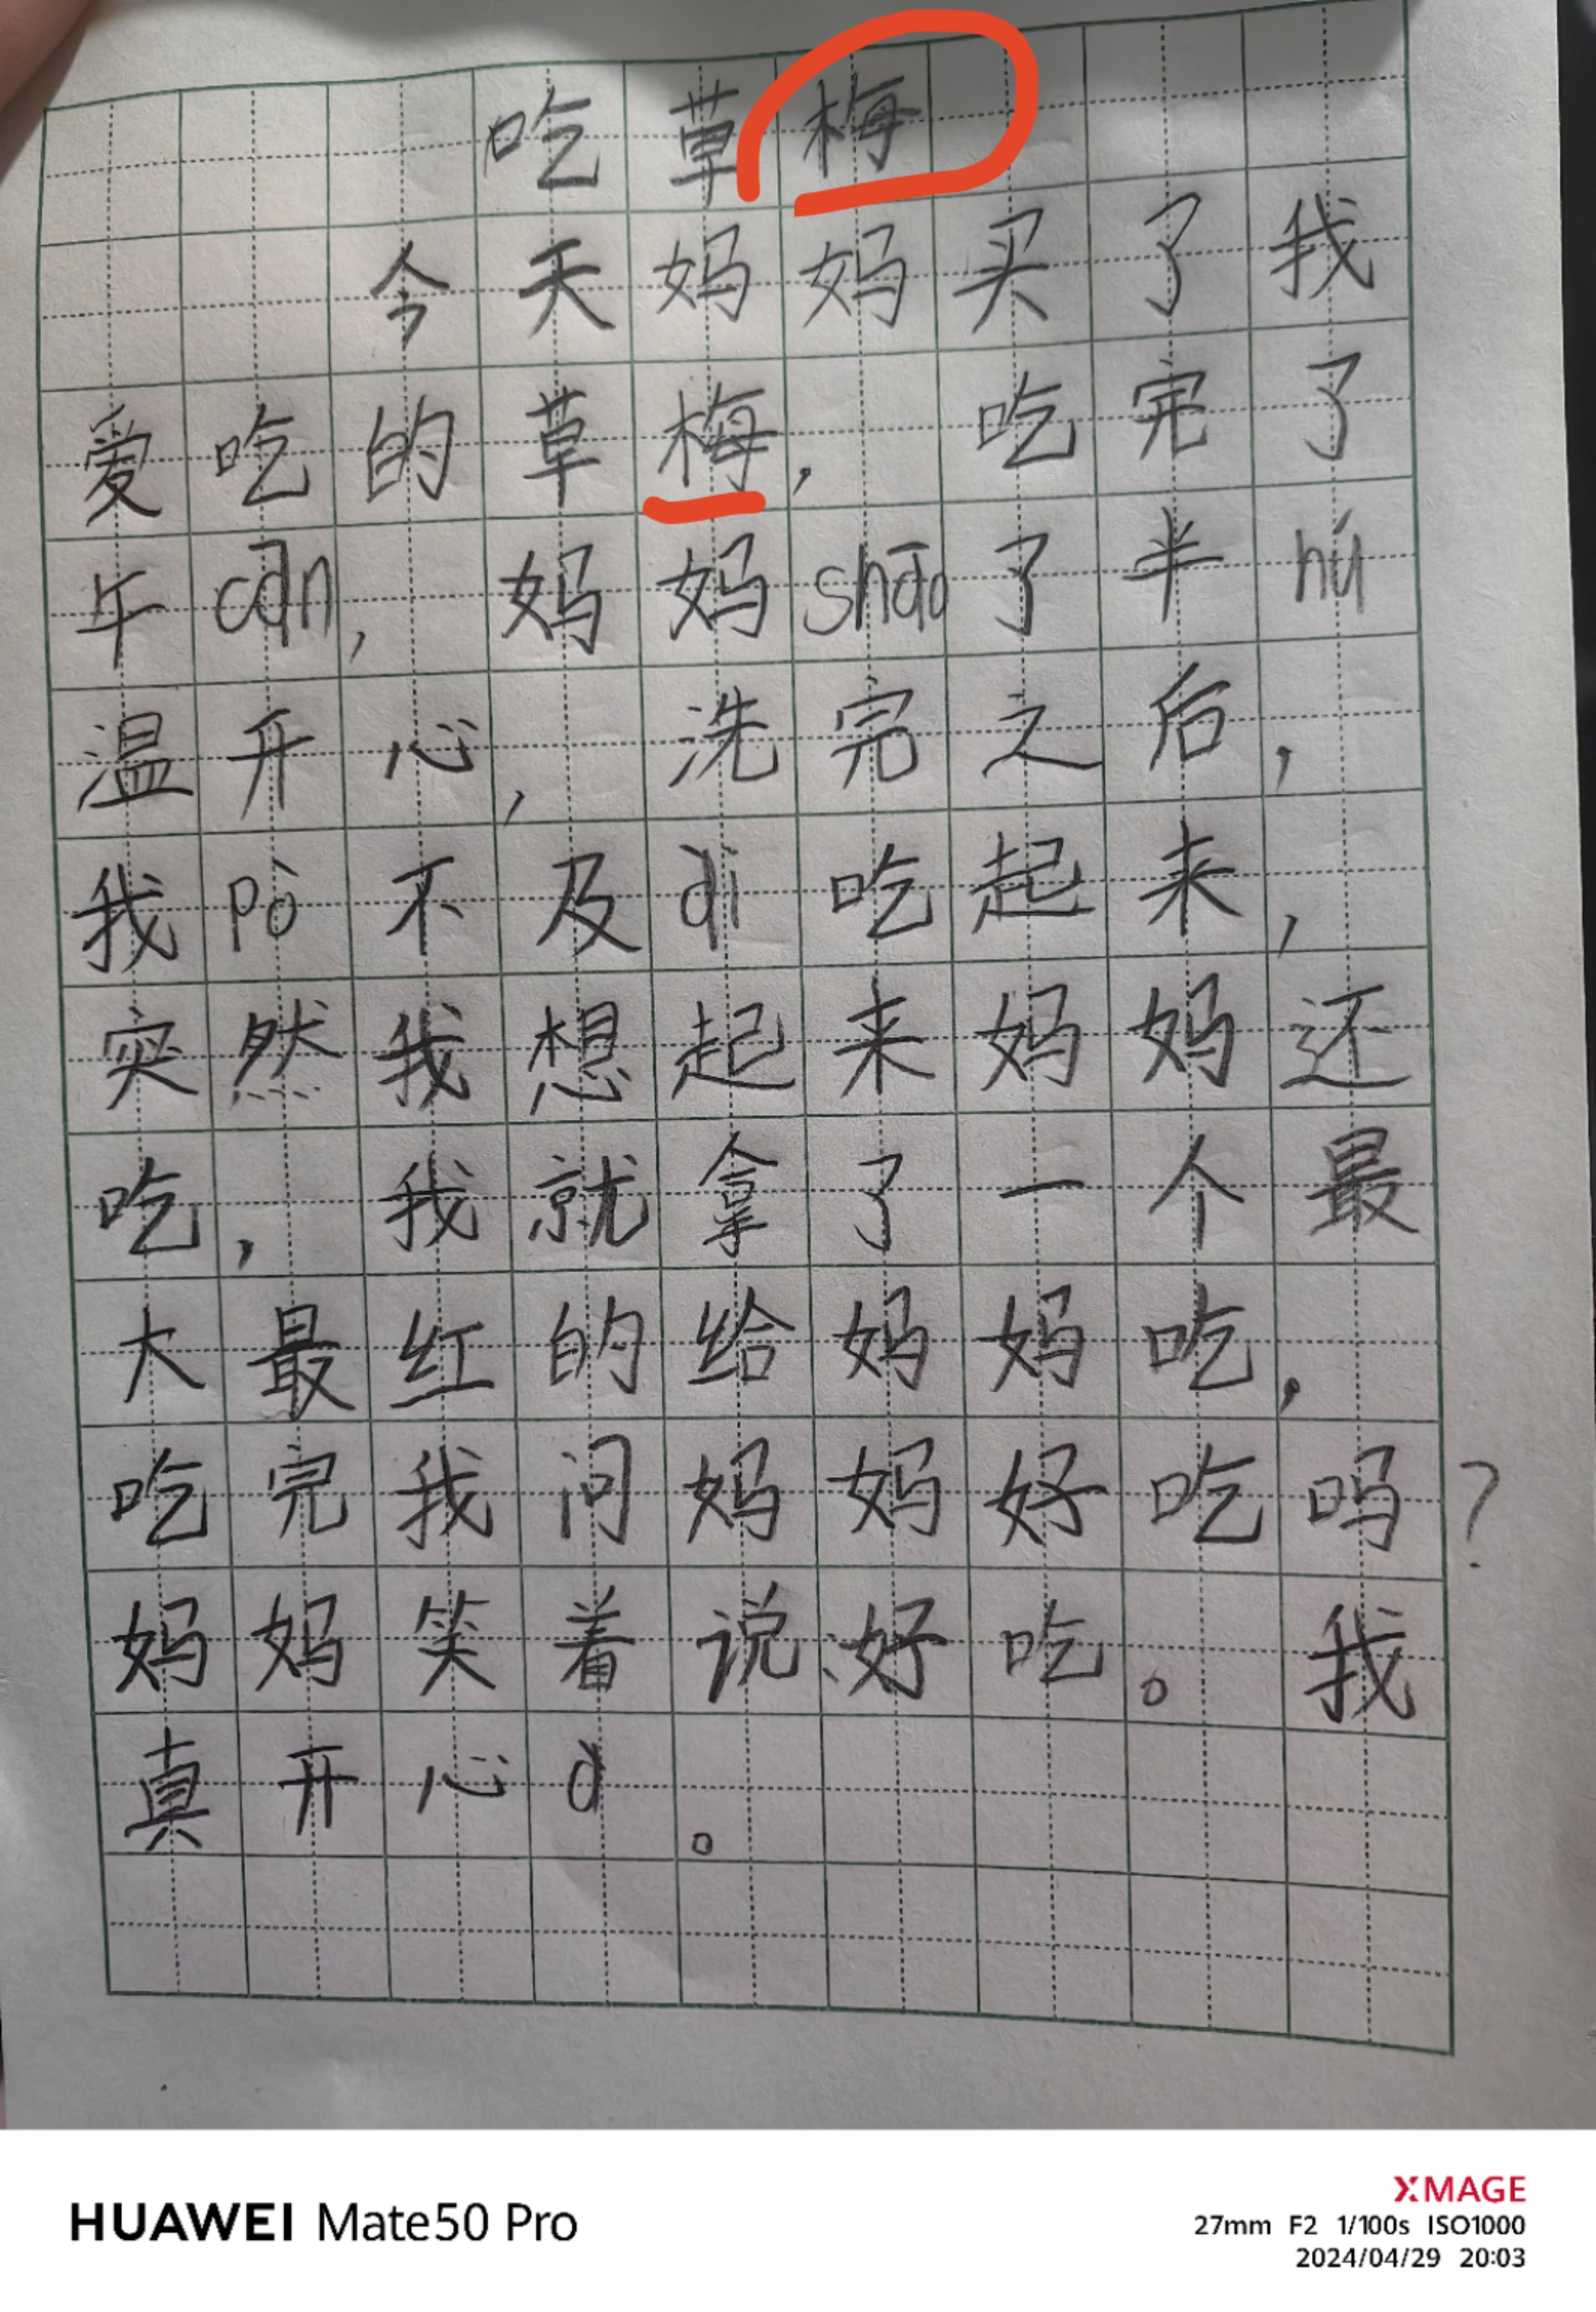 吃草梅
今天妈妈买了我
爱吃的草梅，吃完了
午cān，妈妈shāo了半hú
温开心，洗完之后，
我pò不及dì吃起来，
突然我想起来妈妈还
吃，我就拿了一个最
大最红的给妈妈吃，
吃完我问妈妈好吃吗？
妈妈笑着说：好吃。我
真开心à。
HUAWEI Mate50 Pro
XMAGE
27mm F2 1/100s ISO1000
2024/04/29 20:03